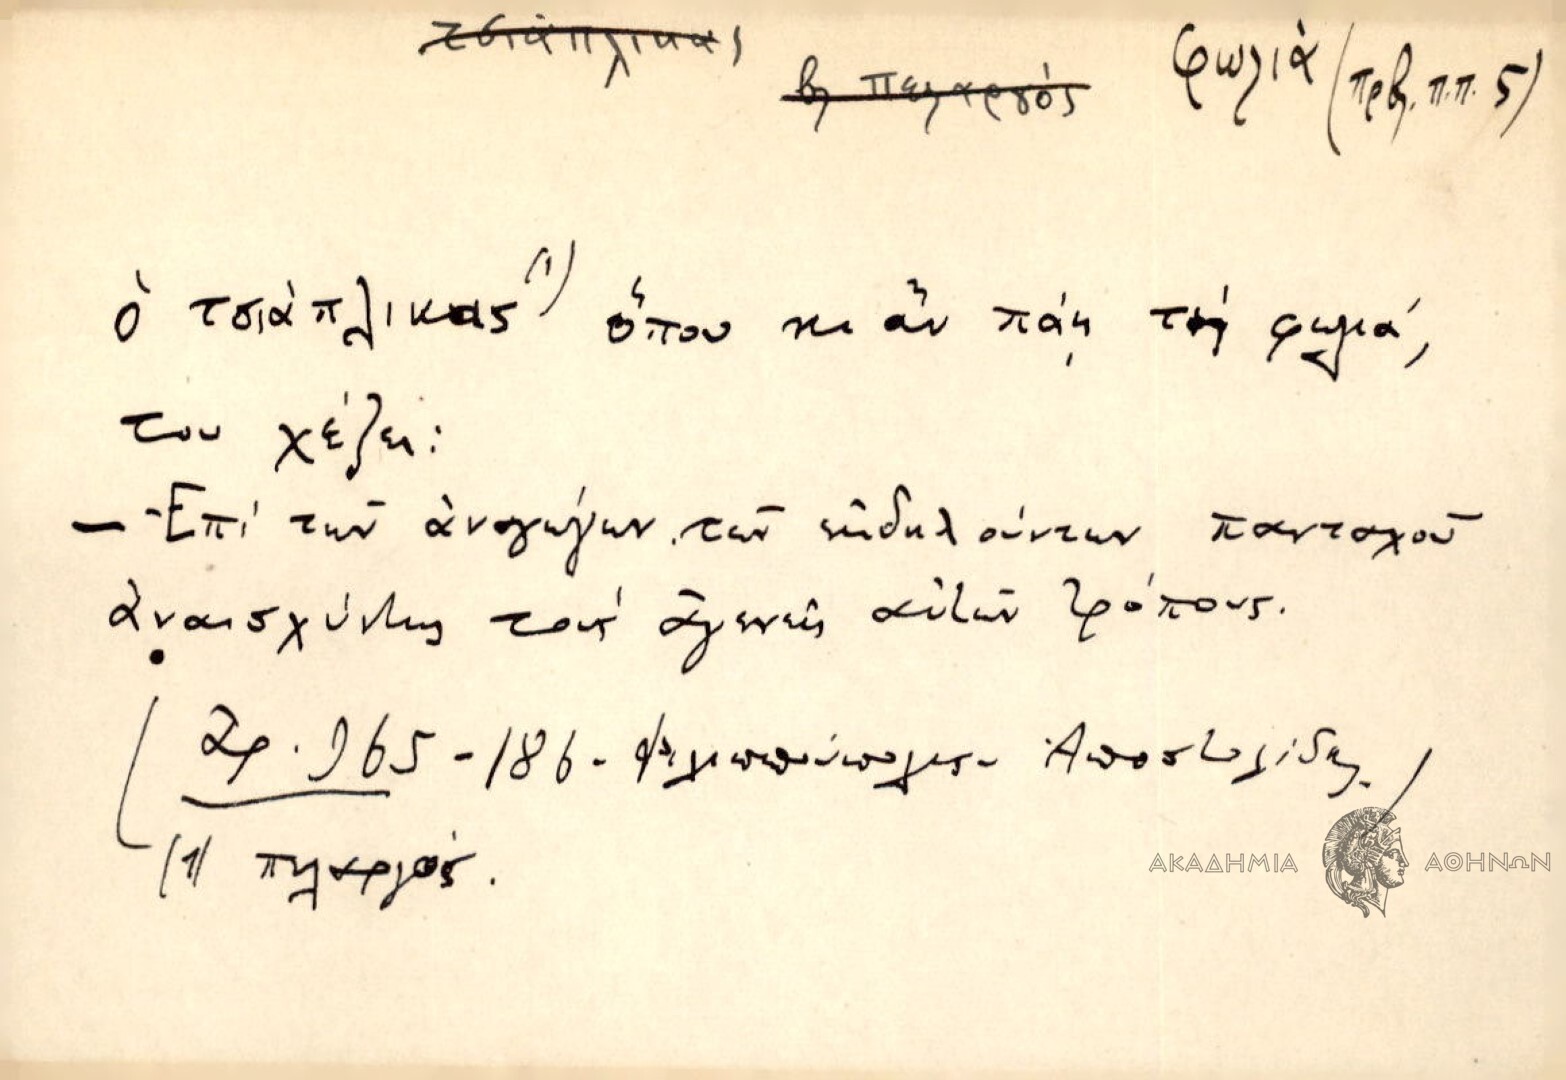 τσιάπλικας
βλ πελαργός
φωλιὰ (πρβλ. π.π. 5)
ὁ τσιὰπλικας (1) ὅπου κι ἂν πάῃ τὴ φωλιά,
του χέζει:
— Ἐπὶ τῶν ἀναγώγων τῶν ἐκδηλούντων πανταχοῦ
ἀναισχύντως τοὺς ἀγενεῖς αὐτῶν τρόπους.
Ἀρ. 965 - 186 - Φιλιππούπολις - Ἀποστολίδης
(1) πελαργός.
ΑΚΑΔΗΜΙΑ ΑΘΗΝΩΝ